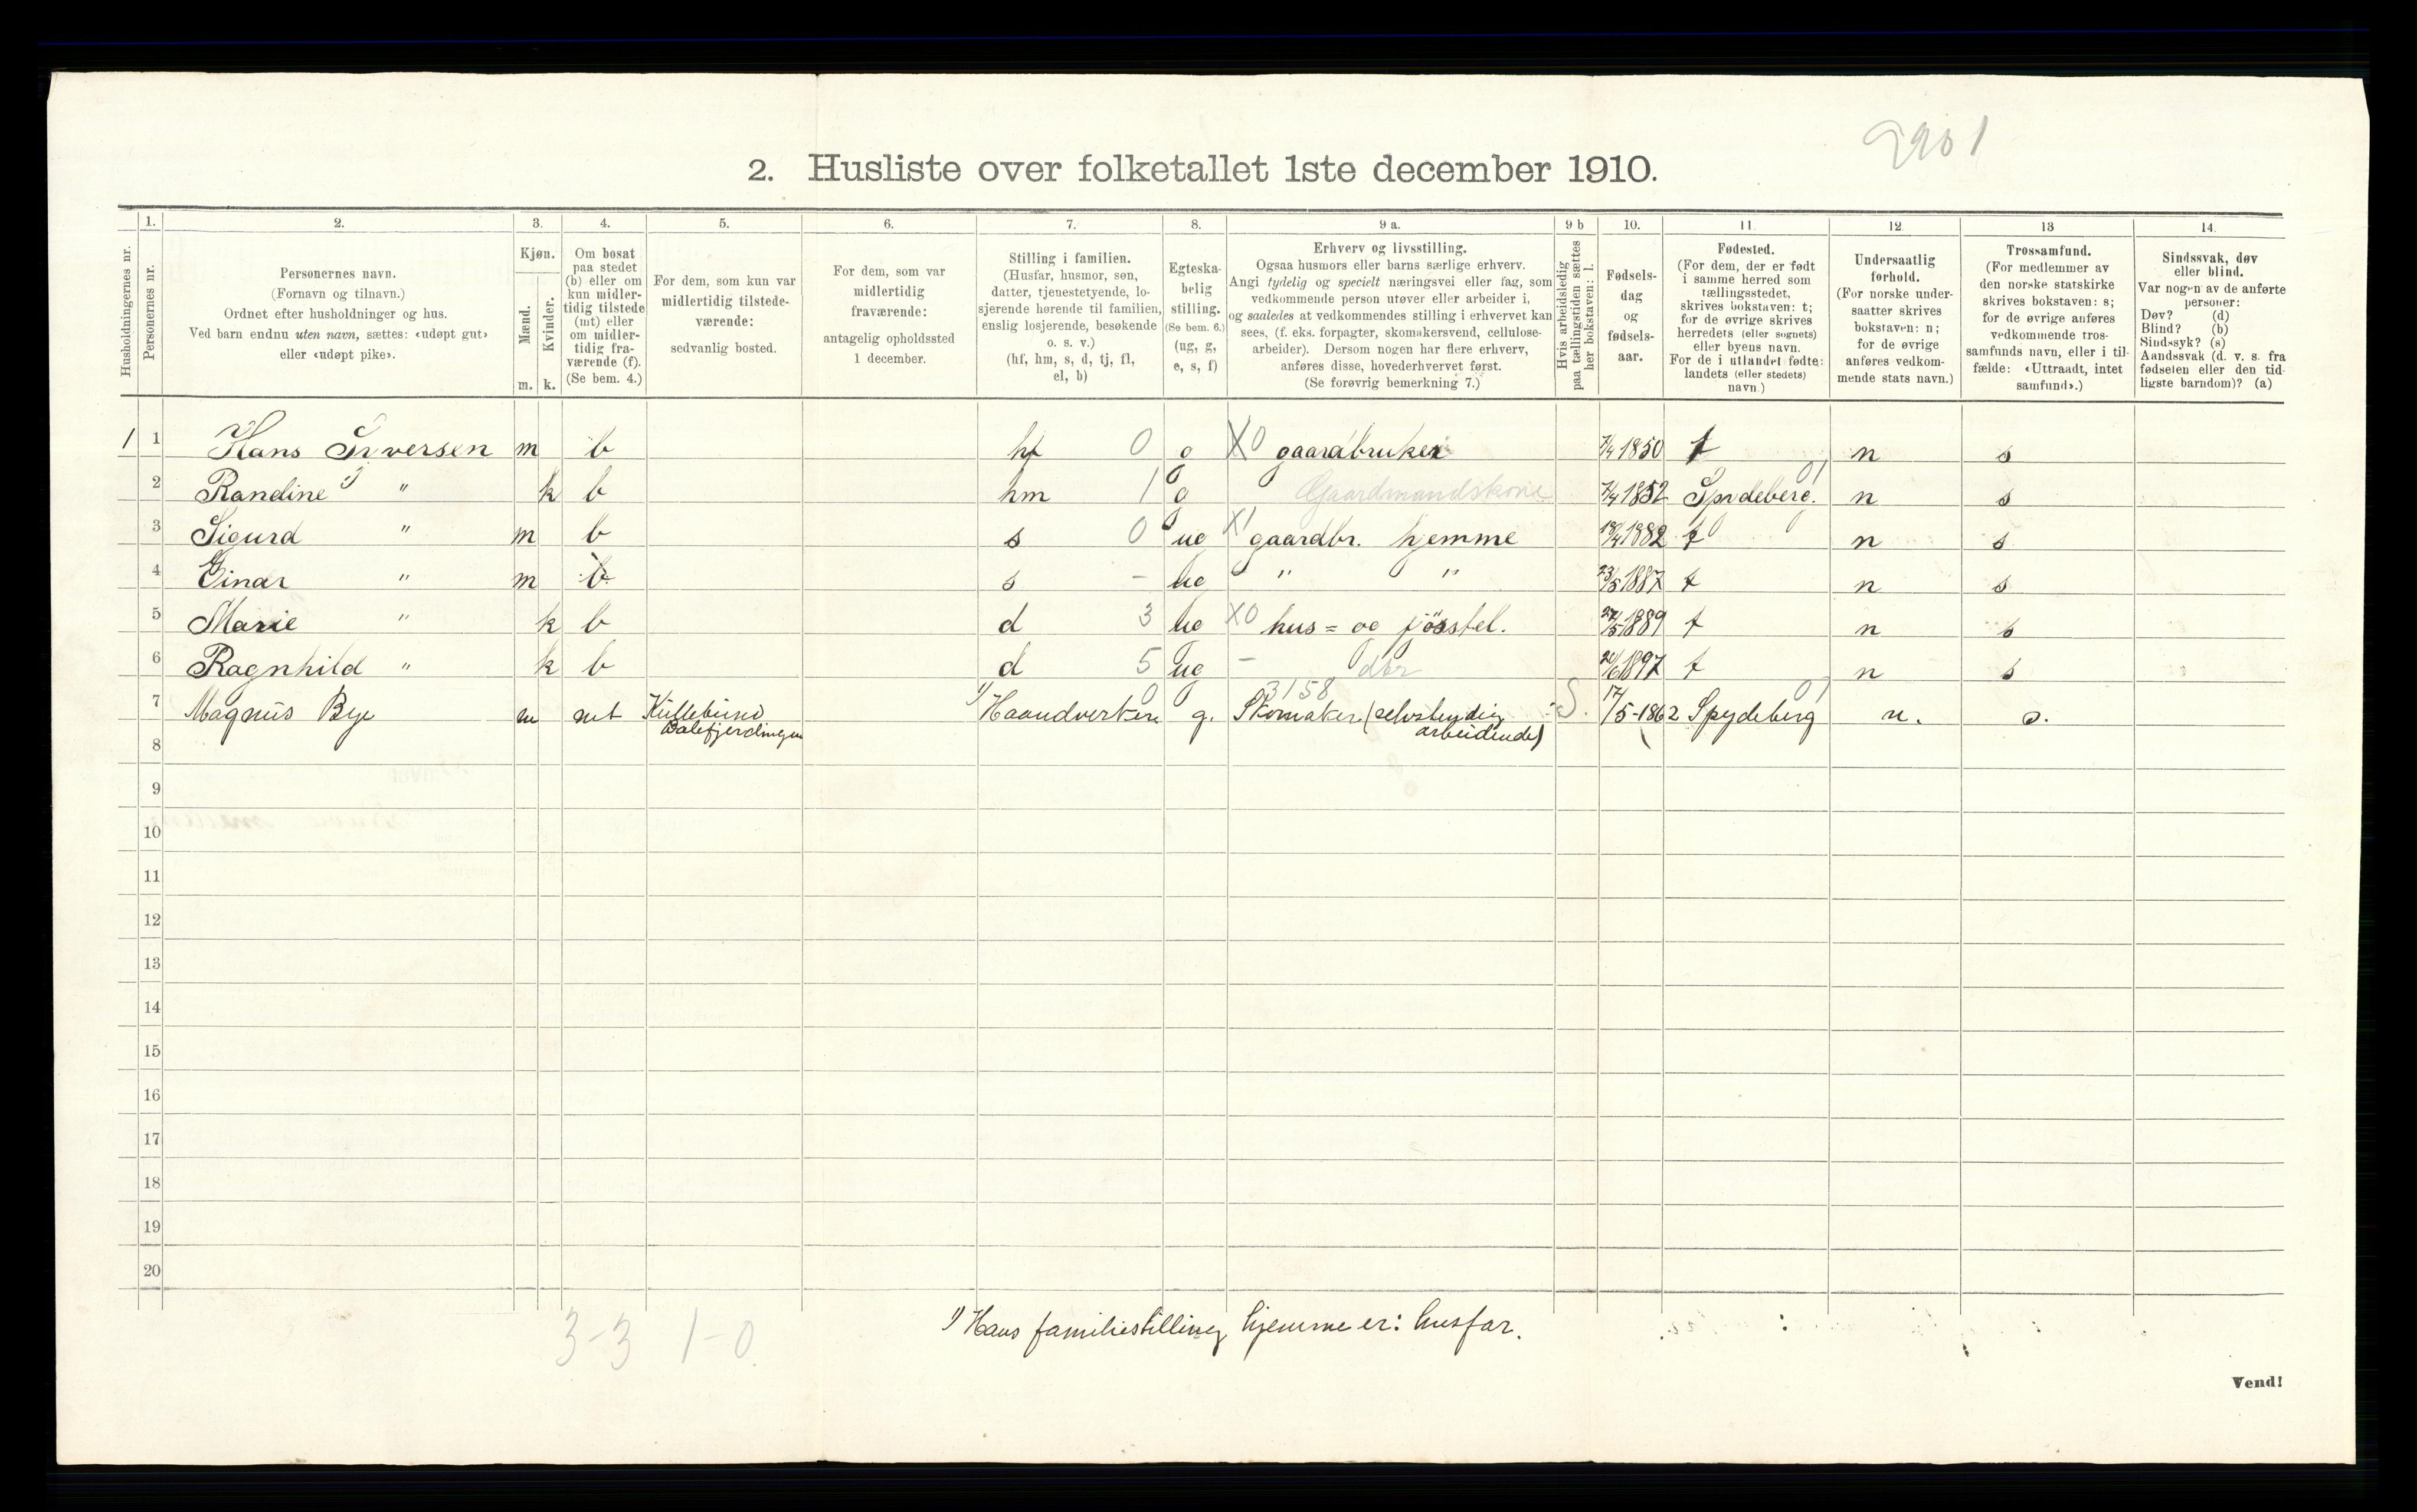 2901
2. Husliste over folketallet 1ste december 1910.
1. 2. 3. 4. 5. 6. 7. 8. 9 a. 9 b 10. 11. 12. 13 14.
Husholdningernes nr.
Personernes nr.
Personernes navn.
(Fornavn og tilnavn.)
Ordnet efter husholdninger og hus.
Ved barn endnu uten navn, sættes: «udøpt gut»
eller «udøpt pike».
Kjøn.
Mænd.
Kvinder.
m. k.
Om bosat
paa stedet
(b) eller om
kun midler-
tidig tilstede
(mt) eller
om midler-
tidig fra-
værende (f).
(Se bem. 4.)
For dem, som kun var
midlertidig tilstede-
værende:
sedvanlig bosted.
For dem, som var
midlertidig
fraværende:
antagelig opholdssted
1 december.
Stilling i familien.
(Husfar, husmor, søn,
datter, tjenestetyende, lo-
sjerende hørende til familien,
enslig losjerende, besøkende
o. s. v.)
(hf, hm, s, d, tj, fl,
el, b)
Egteska-
belig
stilling.
(Se bem. 6.)
(ug, g,
e, s, f)
Erhverv og livsstilling.
Ogsaa husmors eller barns særlige erhverv.
Angi tydelig og specielt næringsvei eller fag, som
vedkommende person utøver eller arbeider i,
og saaledes at vedkommendes stilling i erhvervet kan
sees, (f. eks. forpagter, skomakersvend, cellulose-
arbeider). Dersom nogen har flere erhverv,
anføres disse, hovederhvervet først.
(Se forøvrig bemerkning 7.)
Hvis arbeidsledig
paa tællingstiden sættes
her bokstaven: l.
Fødsels-
dag
og
fødsels-
aar.
Fødested.
(For dem, der er født
i samme herred som
tællingsstedet,
skrives bokstaven: t;
for de øvrige skrives
herredets (eller sognets)
eller byens navn.
For de i utlandet fødte:
landets (eller stedets)
navn.)
Undersaatlig
forhold.
(For norske under-
saatter skrives
bokstaven: n;
for de øvrige
anføres vedkom-
mende stats navn.)
Trossamfund.
(For medlemmer av
den norske statskirke
skrives bokstaven: s;
for de øvrige anføres
vedkommende tros-
samfunds navn, eller i til-
fælde: «Uttraadt, intet
samfund».)
Sindssvak, døv
eller blind.
Var nogen av de anførte
personer:
Døv? (d)
Blind? (b)
Sindssyk? (s)
Aandssvak (d. v. s. fra
fødselen eller den tid-
ligste barndom)? (a)
1 1 Hans Iversen m b hf 0 g X0 gaardbruker 7/4 1850 t n s
2 Randine " k b hm 1 g Gaardmandskone 7/4 1852 Spydeberg. 01 n s
3 Sigurd " m b s 0 ug X1 gaardbr. hjemme 18/4 1882 t n s
4 Einar " m b s - ug " " 23/5 1887 t n s
5 Marie " k b d 3 ug X0 hus= og fjøsstel. 27/5 1889 t n s
6 Ragnhild " k b d 5 ug - dtr 1897 t n s
7 Magnus Bye m mt Kullebund 1) Haandverker 0 g. 3158 Skomaker (selvstendig S. 17/5-1862 Spydeberg 01 n. s.
Dalefjerdingen arbeidende)
8
9
10
11
12
13
14
15
16
17
18
19
20
3-3 1-0.
1) Hans familiestilling hjemme er: husfar.
Vend!